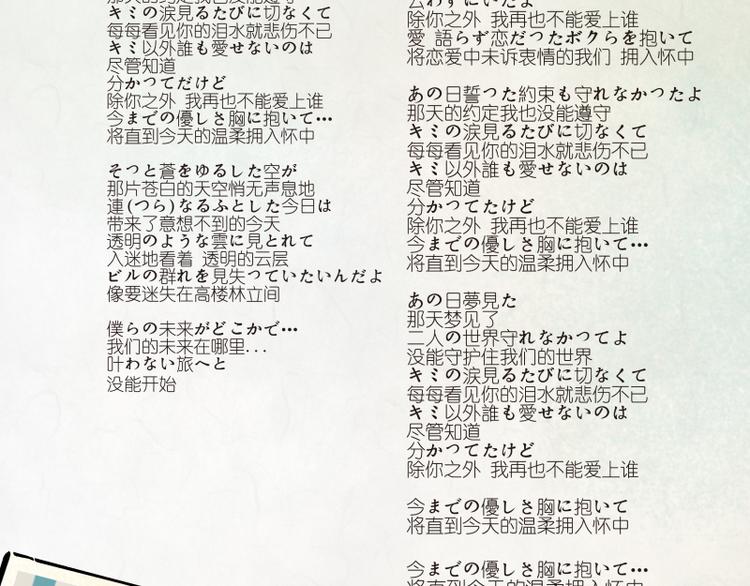 キミの涙見るたびに切なくて
每每看见你的泪水就悲伤不已
キミ以外誰も愛せないのは
尽管知道
分かつてたけど
除你之外 我再也不能爱上谁
今までの優しさ胸に抱いて…
将直到今天的温柔拥入怀中
そつと蒼をゆるした空が
那片苍白的天空悄无声息地
連(つら)なるふとした今日は
带来了意想不到的今天
透明のような雲に見とれて
入迷地看着 透明的云层
ビルの群れを見失つていたいんだよ
像要迷失在高楼林立间
僕らの未来がどこかで…
我们的未来在哪里...
叶わない旅へと
没能开始
除你之外 我再也不能爱上谁
愛 語らず恋だつたボクらを抱いて
将恋爱中未诉衷情的我们 拥入怀中
あの日誓つた約束も守れなかつたよ
那天的约定我也没能遵守
キミの涙見るたびに切なくて
每每看见你的泪水就悲伤不已
キミ以外誰も愛せないのは
尽管知道
分かつてたけど
除你之外 我再也不能爱上谁
今までの優しさ胸に抱いて…
将直到今天的温柔拥入怀中
あの日夢見た
那天梦见了
二人の世界守れなかつてよ
没能守护住我们的世界
キミの涙見るたびに切なくて
每每看见你的泪水就悲伤不已
キミ以外誰も愛せないのは
尽管知道
分かつてたけど
除你之外 我再也不能爱上谁
今までの優しさ胸に抱いて
将直到今天的温柔拥入怀中
今までの優しさ胸に抱いて…